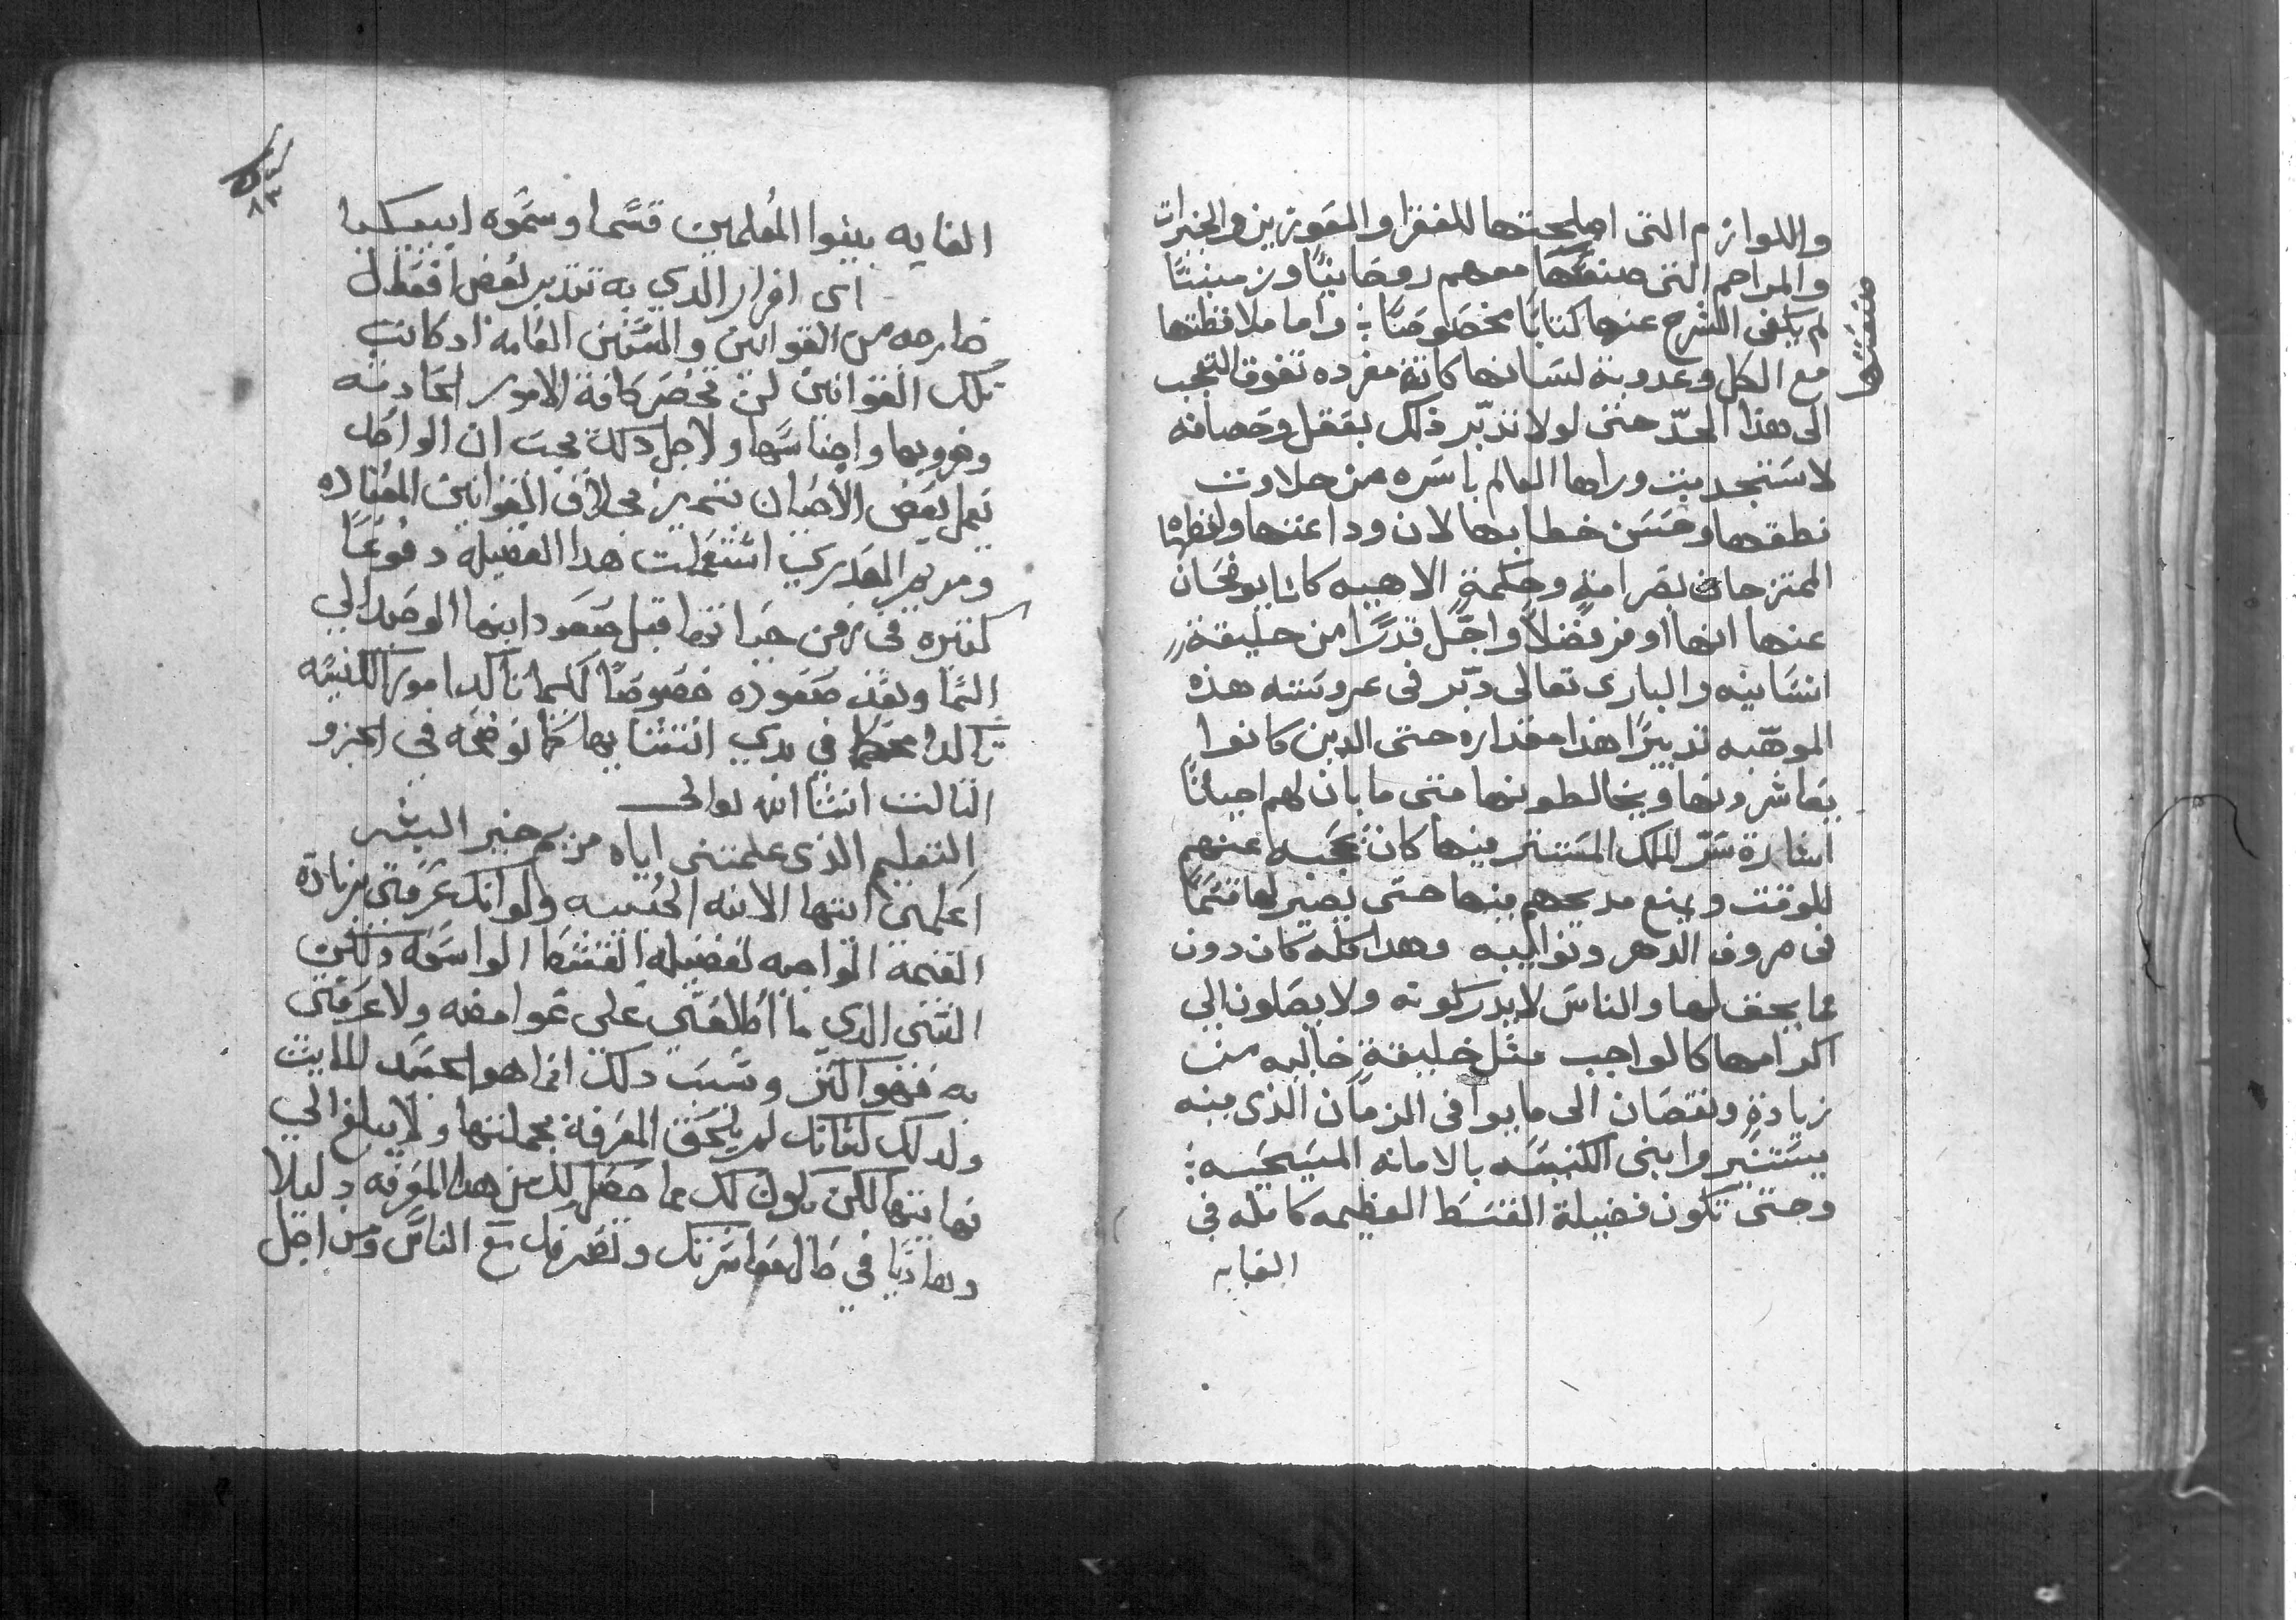 واللوازم التى اصلحتها للفقرا والمعوزين والخيرات
والمراحم التى صنعتها معهم روحانيًا وزمنيًا
صنعتها
لم يكفى الشرح عنها كتابًا مخصوصًا ؛ واما ملافظتها
مع الكل وعدوبة لسانها كانة مفرده تفوق التعجب
الى هذا الحدّ حتى لولا تدبّر ذلك بعقل وحصافه
لاستجدبت وراها العالم باسره من حلاوت
نطقها وحسن خطابها لان وداعتها ولفظها
الممتزجان بصرامةٍ وحكمةٍ الاهيه كانا يوضحان
عنها انها اوفر فضلاً واجّل قدرًا من خليقة
انسانيه والبارى تعالى دبّر فى عروسته هذه
الموهّبه تدبيرًا هذا مقداره حتى الدين كانوا
يعاشرونها ويخالطونها متى ما بان لهم احيانًا
اشارة سرّ الملك المستتر فيها كان يحجبه عنهم
للوقت ويمنع مديحهم فيها حتى يصير لها قسمًا
فى صروف الدهر ونوايبه وهدا كله كان دون
مما يحق لها والناس لا يدركونه ولا يصلون الى
اكرامها كالواجب مثل خليقةٍ خاليه من
زيادةٍ ونقصان الى ما يوافى الزمان الذى فيه
يستنيروا بنى الكنيسه بالامانه المسيحيه ؛
وحتى تكون فضيلة القسط العظيمه كامله فى
الغايه
٨٣
الغايه بينوا المعلمين قسمًا وسموه ابيكيا
اى افراز الدي به تتدبر بعض افعال
خارجه من القوانين والسنن العامه اد كانت
تلك القوانين لن تحصر كافة الامور الحادثه
وضروبها واجناسها ولاجل دلك يجب ان الواحد
يعمل بعض الاحيان بتمييز بخلاف القوانين المعتاده
ومريم العدري استعملت هدا الفضيله دفوعًا
كثيره فى زمن حياتها قبل صعود ابنها الوحيد الي
السما وبعد صعوده خصوصًا لكيما تأكد امور الكنيسه
تأكدًا محكمًا في بدي انتشابها كما نوضحه فى الجزو
التالت انشا الله تعالى
التعليم الذى علمتنى اياه مريم خير البشر
اعلمى ايتها الابنه الحبيبه ولو انك عرفتى بزيادة
القيمة الواجبه لفضيلة القسط الواسعه ولكن
الشى الدي ما اطلعتي على غوامضه ولا عرفتى
به فهو اكتر وسبب دلك انما هو الجسد المايت
ولدلك لغاتك لم يلحق المعرفة بجملتها ولا يبلغ الي
نهايتها لكن يكون لك مما حصل لك من هدا المعرفه دليلا
وهاديًا في حال معاشرتك وتصرفك مع الناس ومن اجل